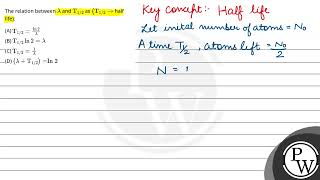 The relation between λ and T₁/₂ as (T₁/₂ → half
life)
(A) T₁/₂ = ln 2/λ
(B) T₁/₂ ln 2 = λ
(C) T₁/₂ = 1/λ
(D) (λ + T₁/₂) = ln 2
Key concept:- Half life
Let inital number of atoms = N₀
A time T₁/₂, atoms left = N₀/2
N =
PW